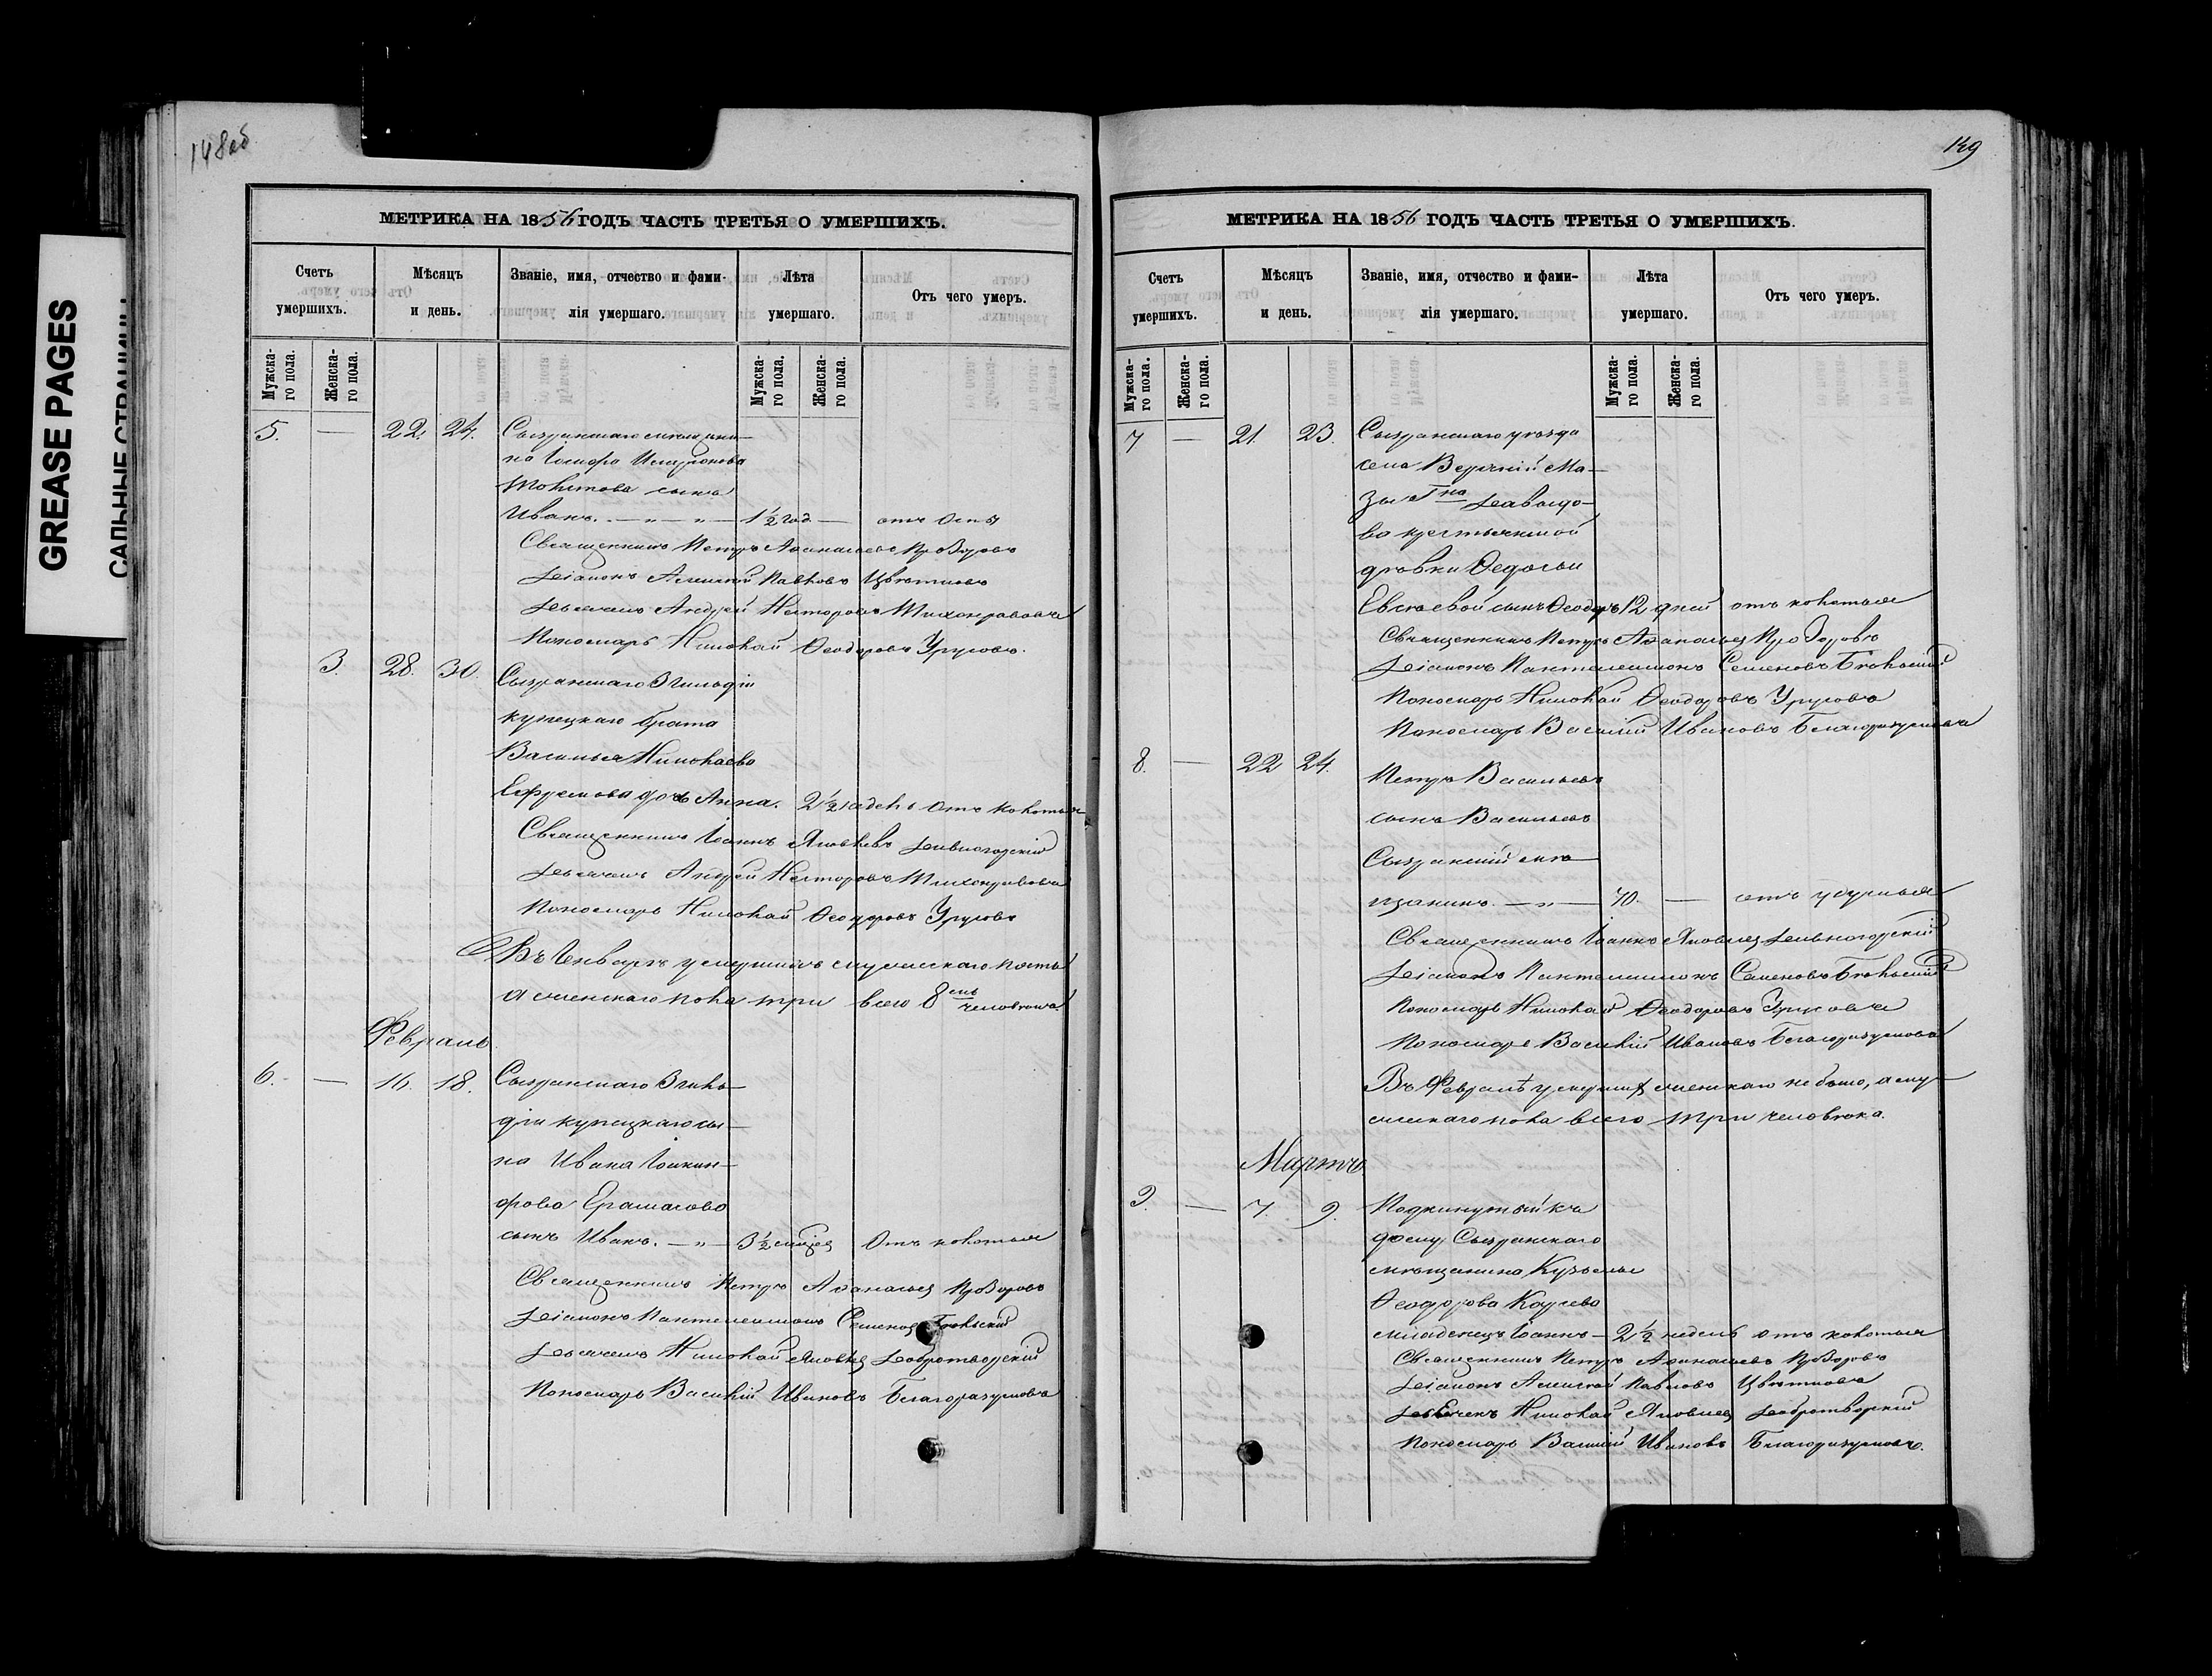 148об
GREASE PAGES
САЛЬНЫЕ СТРАНИЦЫ
МЕТРИКА НА 1856 ГОДЪ ЧАСТЬ ТРЕТЬЯ О УМЕРШИХЪ.
Счетъ умершихъ. Мѣсяцъ и день. Званіе, имя, отчество и фами-
лія умершаго. Лѣта умершаго. Отъ чего умеръ.
Мужска-
го пола. Женска-
го пола. Мужска-
го пола. Женска-
го пола.
5. — 22. 24. Сызранскаго мѣщани-
на Іосифа
сынъ
Иванъ. — „ — „ — 1½ год. — отъ оспы
Священникъ Петръ Аѳанасьевъ Прозоровъ
Діаконъ Алексѣй Павловъ Цвѣтковъ
Дьячекъ Андрей Несторовъ Тихонравовъ
Пономарь Николай Ѳеодоровъ Урусовъ.
3. 28. 30. Сызранскаго 3 гильдіи
купецкаго брата
Василья Николаева
Ефремова дочь Анна. 2½ недѣл отъ колотья
Священникъ Іоаннъ Яковлевъ Дивногорскій
Дьячекъ Андрей Несторовъ Тихонравовъ
Пономарь Николай Ѳеодоровъ Урусовъ
Въ Генварѣ умершихъ мужескаго пять
а женскаго пола три всего 8емь человѣкъ.
Февраль.
6. — 16. 18. Сызранскаго 3 гиль-
діи купецкаго сы-
на Ивана Іоакин-
фова
сынъ Иванъ. — „ — 3½ мѣсяц отъ колотья
Священникъ Петръ Аѳанасьев Прозоровъ
Діаконъ Пантелеимонъ Семенов Бѣльскій
Дьячекъ Николай Яковлев Добротворскій
Пономарь Василій Ивановъ Благоразумовъ
149
МЕТРИКА НА 1856 ГОДЪ ЧАСТЬ ТРЕТЬЯ О УМЕРШИХЪ.
Счетъ умершихъ. Мѣсяцъ и день. Званіе, имя, отчество и фами-
лія умершаго. Лѣта умершаго. Отъ чего умеръ.
Мужска-
го пола. Женска-
го пола. Мужска-
го пола. Женска-
го пола.
7. — 21. 23. Сызранскаго уѣзда
села Верхній Ма-
зы Гна Давыдо-
ва крестьянской
дѣвки Ѳедосьи
Евсѣевой сынъ Ѳеодоръ 12 дней отъ колотья
Священникъ Петръ Аѳанасьев Прозоровъ
Діаконъ Пантелеимонъ Семеновъ Бѣльскій
Пономарь Николай Ѳеодоровъ Урусовъ
Пономарь Василій Ивановъ Благоразумовъ
8. — 22 24. Петръ Васильевъ
сынъ Васильевъ
Сызранскій мѣ-
щанинъ. — „ — 70. — отъ удушья
Священникъ Іоаннъ Яковлев Дивногорскій
Діаконъ Пантелеимонъ Семеновъ Бѣльскій
Пономарь Николай Ѳеодоровъ Урусовъ
Пономарь Василій Ивановъ Благоразумовъ
Въ Февралѣ умерших женскаго не было, а му-
жескаго пола всего три человѣка.
Мартъ
9. — 7. 9. Подкинутый къ
дому Сызранскаго
мѣщанина Кузьмы
Ѳеодорова Карева
младенецъ Іоаннъ — 2½ недель отъ колотья
Священникъ Петръ Аѳанасьевъ Прозоровъ
Діаконъ Алексѣй Павловъ Цвѣтковъ
Дьячекъ Николай Яковлев Добротворскій
Пономарь Василій Ивановъ Благоразумовъ.